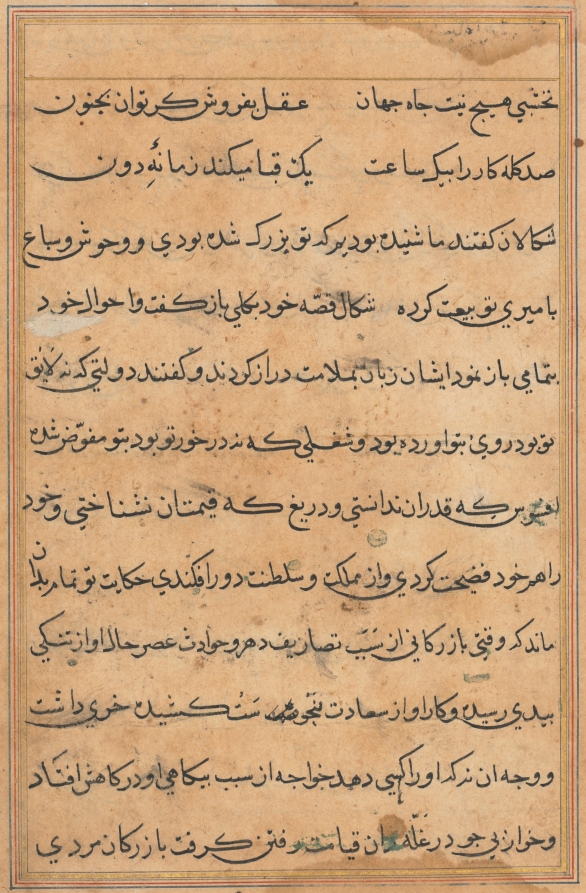 نخشبی هیچ نیت جاه جهان عقل بفروش کر توان بجنون
صد کله کار را بیک ساعت یک قبا میکند زمانهٔ دون
شکالان کفتند ما شنیده بودیم که تو بزرک شده بودی و وحوش و سباع
با میری تو بیعت کرده شکال قصّه خود بکلی باز کفت و احوال خود
بتمامی باز نمود ایشان زبان بملامت دراز کردند و کفتند دولتی که نه لایق
تو بود روی بتو اورده بود و شغلی که نه در خور تو بود بتو مفوّض شده
افسوس که قدر ان ندانستی و دریغ که قیمت ان نشناختی و خود
را هم خود فضیحت کردی و از مملکت و سلطنت دور افکندی حکایت تو تمام بدان
ماند که وقتی بازرکانی از سبب تصاریف دهر و حوادث عصر حال او از تنکی
بیدی رسیده و کار او از سعادت بنحوست کشیده خری داشت
و وجه ان نه که او را کسی دهد خواجه از سبب بیکاهی او در کاهش افتاد
و خر از بی جو در غلّه ان قیامت رفتن کرفت بازرکان مردی